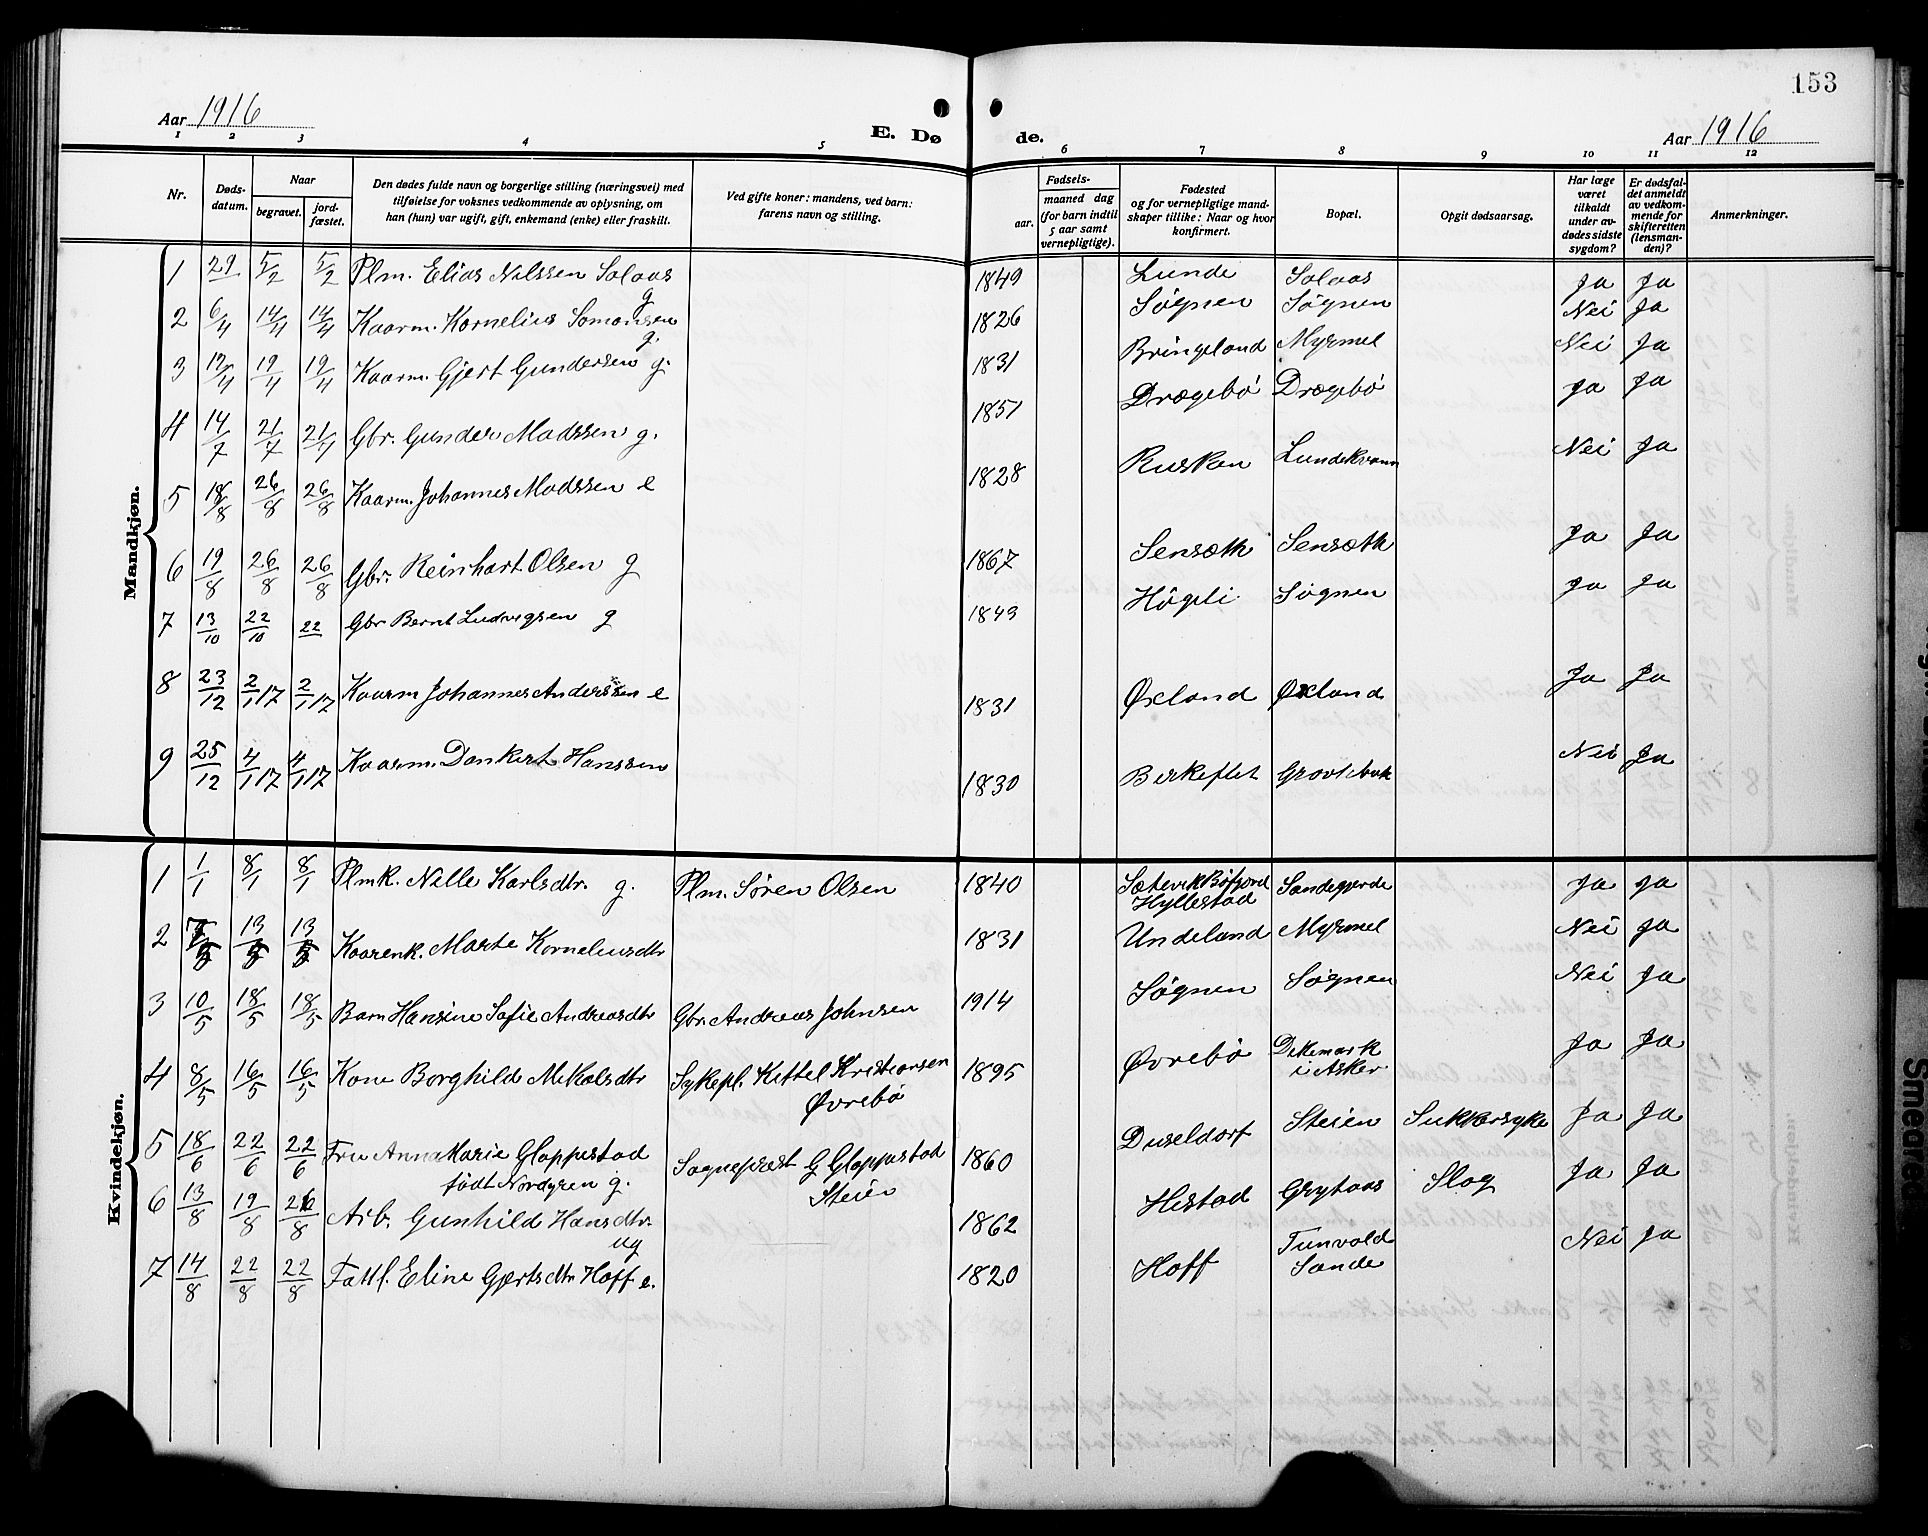 153
Aar 1916
Aar 1916
E. Dø
de.
1 2 3 4 5 6 7 8 9 10 11 12
Nr.
Døds-
datum.
Naar
begravet.
jord-
fæstet.
Den dødes fulde navn og borgerlige stilling (næringsvei) med
tilføielse for voksnes vedkommende av oplysning, om
han (hun) var ugift, gift, enkemand (enke) eller fraskilt.
Ved gifte koner: mandens, ved barn:
farens navn og stilling.
Fødsels-
aar.
maaned dag
(for barn indtil
5 aar samt
vernepligtige).
Fødested
og for vernepligtige mand-
skaper tillike: Naar og hvor
konfirmert.
Bopæl.
Opgit dødsaarsag.
Har læge
været
tilkaldt
under av-
dødes sidste
sygdom?
Er dødsfal-
det anmeldt
av vedkom-
mende for
skifteretten
(lensman-
den)?
Anmerkninger.
Mandkjøn.
1 29 5/2 5/2 Plm. Elias Nilssen Solaas g 1849 Lunde Solaas Ja Ja
2 6/4 14/4 14/4 Kaarm. Kornelius Somonsen g. 1826 Søgnen Søgnen Nei Ja
3 12/4 19/4 19/4 Kaarm. Gjert Gundersen g. 1831 Bringeland Myrmel Nei Ja
4 14/7 21/7 21/7 Gbr. Gunder Madssen g. 1851 Drægebø Drægebø Ja Ja
5 18/8 26/8 26/8 Kaarm. Johannes Madssen e 1828 Rusken Lundekvam Nei Ja
6 19/8 26/8 26/8 Gbr. Reinhart Olsen g 1867 Sensæth Sensæth Ja Ja
7 13/10 22/10 22 Gbr Bernt Ludvigsen g 1843 Høgeli Søgnen Ja Ja
8 23/12 2/1 17 2/1 17 Kaarm Johannes Anderssen e 1831 Øxland Øxland Ja Ja
9 25/12 4/1 17 4/1 17 Kaarm. Dankert Hanssen 1830 Birkeflet Nei Ja
Kvindekjøn.
1 1/1 8/1 8/1 Plmk. Nille Karlsdtr. g. Plm. Søren Olsen 1840 Sætevik Bøfjord
Hyllestad Sandegjerde Ja Ja
2 13/5 13/5 Kaarenk. Marte Korneliusdtr 1831 Undeland Myrmel Nei Ja
3 10/5 18/5 18/5 Barn Hansine Sofie Andreasdtr Gbr. Andreas Johnsen 1914 Søgnen Søgnen Nei Ja
4 8/5 16/5 16/5 Kone Borghild Mikalsdtr Sykepl. Kittel Kristiansen
Øvrebø 1895 Øvrebø Dikemark
i Asker Ja Ja
5 18/6 22/6 22/6 Fru Anna Marie Gloppestad
født Nordgren g. Sogneprest G Gloppestad
Steien 1860 Duseldorf Steien Sukkersyke Ja Ja
6 13/8 19/8 26/8 Arb. Gunhild Hansdtr.
ug 1862 Hestad Grytaas Slag Ja Ja
7 14/8 22/8 22/8 Fattl. Eline Gjertsdtr Hoff e. 1820 Hoff Tunvald
Sande Nei Ja
Smeared